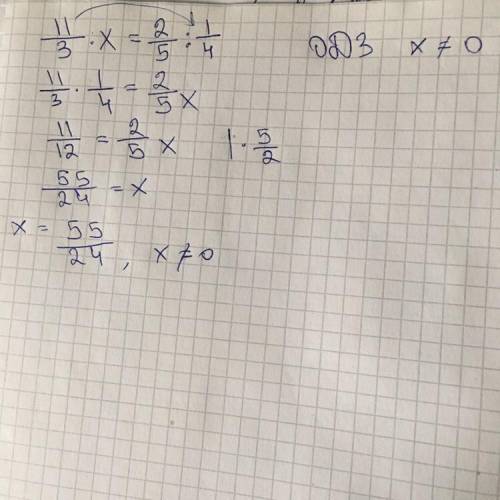 11/3 : x = 2/5 : 1/4 ОДЗ x ≠ 0
11/3 · 1/4 = 2/5 x
11/12 = 2/5 x | · 5/2
55/24 = x
x = 55/24, x ≠ 0